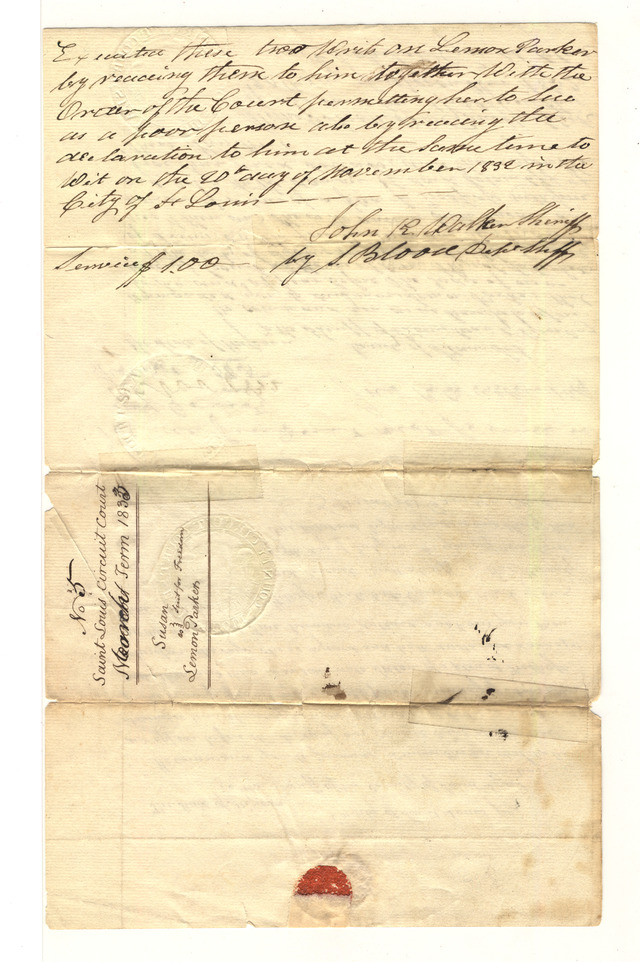 Executed these two Writs on Lemon Parker
by reading them to him together With the
Order of the Court permitting her to Sue
as a poor person also by reading the
declaration to him at the Same time to
Wit on the 20th day of November 1832 in the
City of St Louis
John K Walker Sheriff
Service $1.00 by S. Blood Dept Shff
No 5
Saint Louis Circuit Court
March Term 1833
Susan
vs } Suit for Freedom
Lemon Parker